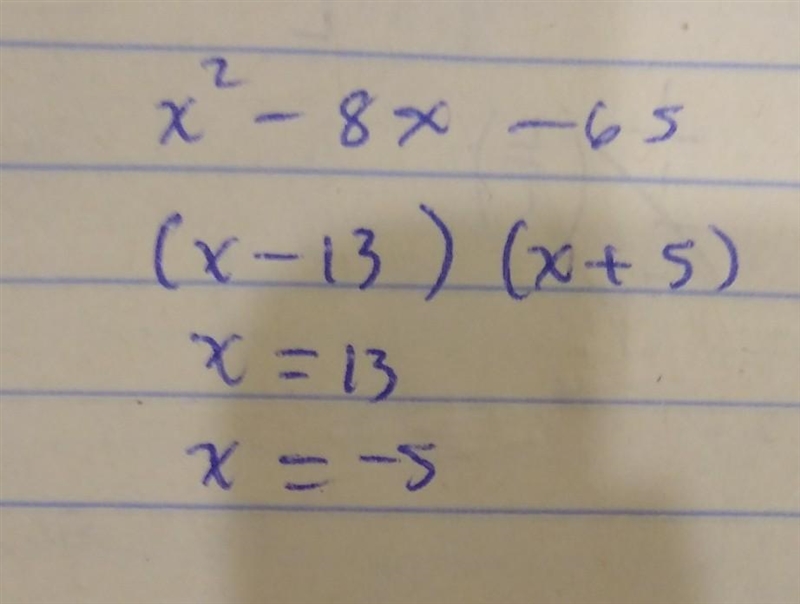 x² - 8x - 65
(x - 13) (x + 5)
x = 13
x = -5